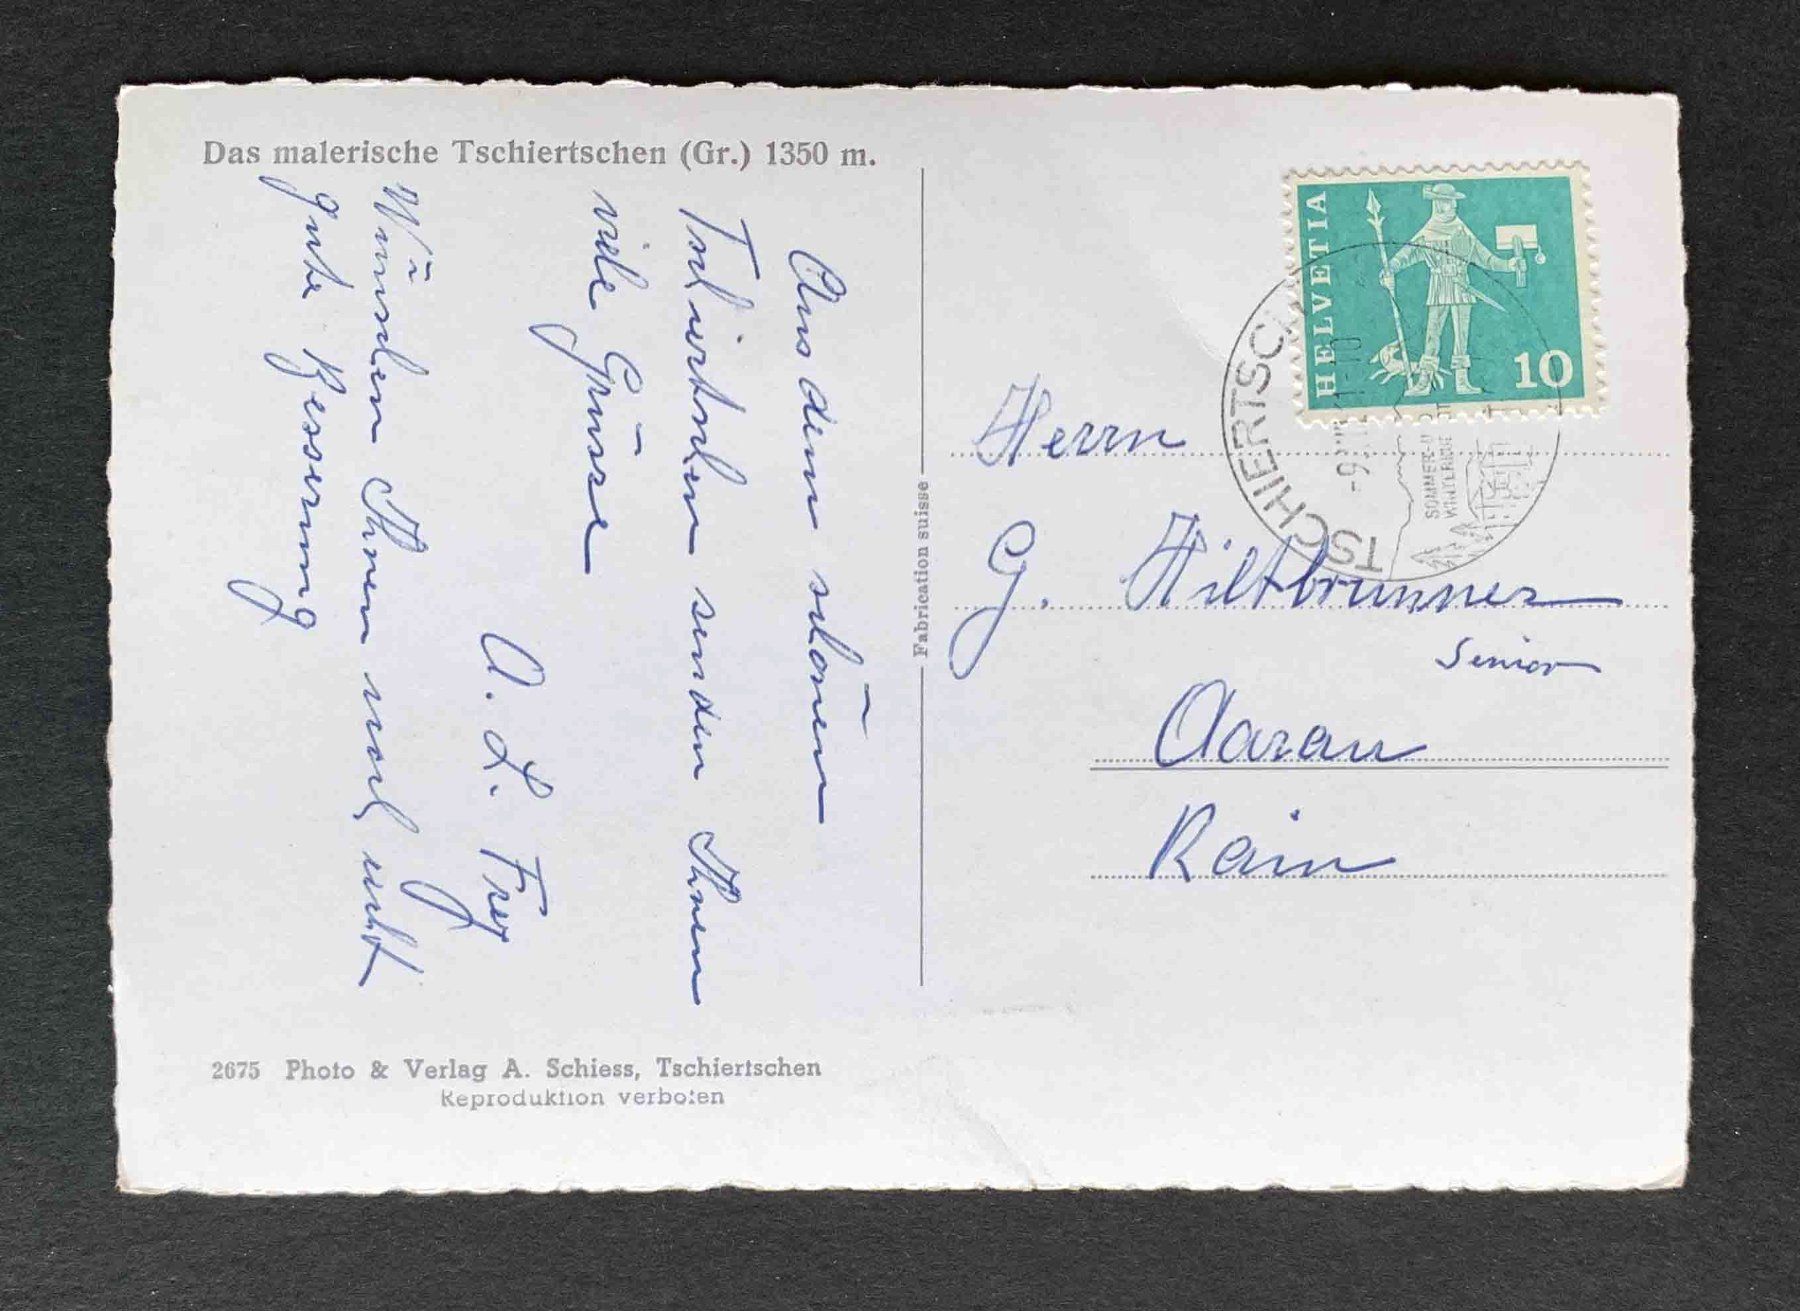 Das malerische Tschiertschen (Gr.) 1350 m.
Aus dem schönen
Tschiertschen senden Ihnen
viele Grüsse
A. L. Frey
Wünschen Ihnen noch recht
gute Besserung
2675 Photo & Verlag A. Schiess, Tschiertschen
Reproduktion verboten
Fabrication suisse
HELVETIA
10
TSCHIERTSCH
SOMMER-U
Herrn
G. Hiltbrunner
Senior
Aarau
Rain